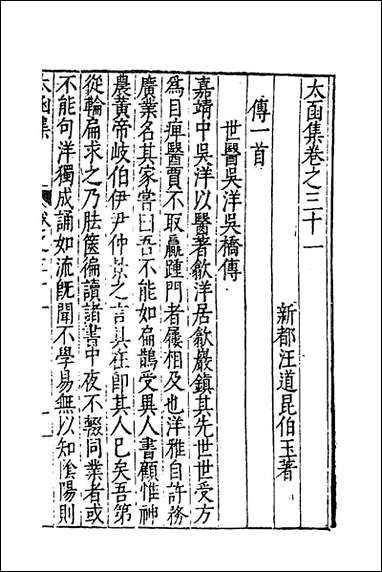 太函集卷之三十一
新都汪道昆伯玉著
傳一首
世醫吳洋吳橋傳
嘉靖中吳洋以醫著歙洋居歙巖鎮其先世世受方
為目痺醫賈不取贏踵門者屨相及也洋雅自許務
廣業名其家嘗曰吾不能如扁鵲受異人書顧惟神
農黃帝岐伯伊尹仲景之言具在卽其人已矣吾第
從輪扁求之乃胠篋徧讀諸書中夜不輟同業者或
不能句洋獨成誦如流旣聞不學易無以知陰陽則
太函集
卷之三十一
一